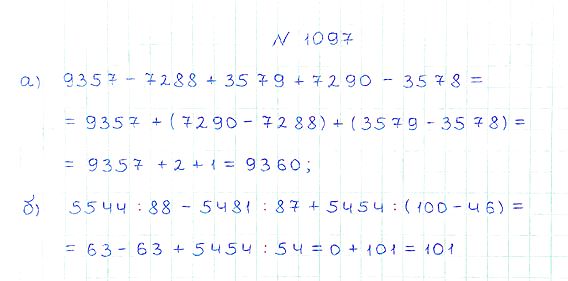 N 1097
а) 9357 - 7288 + 3579 + 7290 - 3578 =
= 9357 + (7290 - 7288) + (3579 - 3578) =
= 9357 + 2 + 1 = 9360;
б) 5544 : 88 - 5481 : 87 + 5454 : (100 - 46) =
= 63 - 63 + 5454 : 54 = 0 + 101 = 101